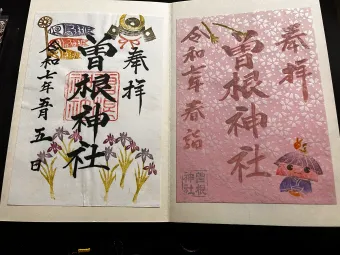 奉拝
曽根神社
令和七年五月五日
奉拝
曽根神社
令和七年春詣
曽根神社